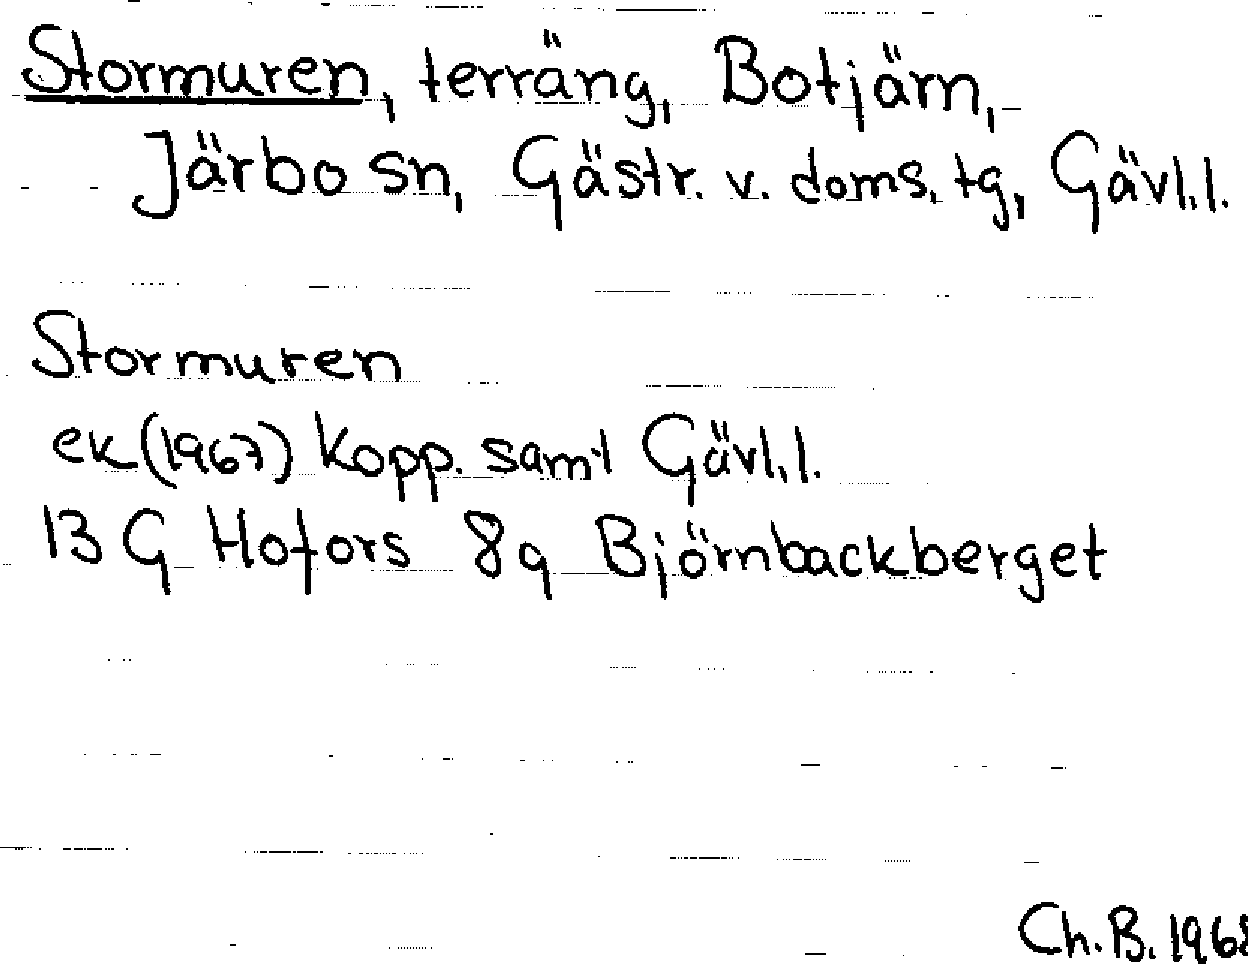 Stormuren, terräng, Botjärn,
Järbo sn, Gästr. v. doms. tg, Gävl. l.
Stormuren
ek (1967) Kopp. samt Gävl. l.
13 G Hofors 8g Björnbackberget
Ch. B. 1968